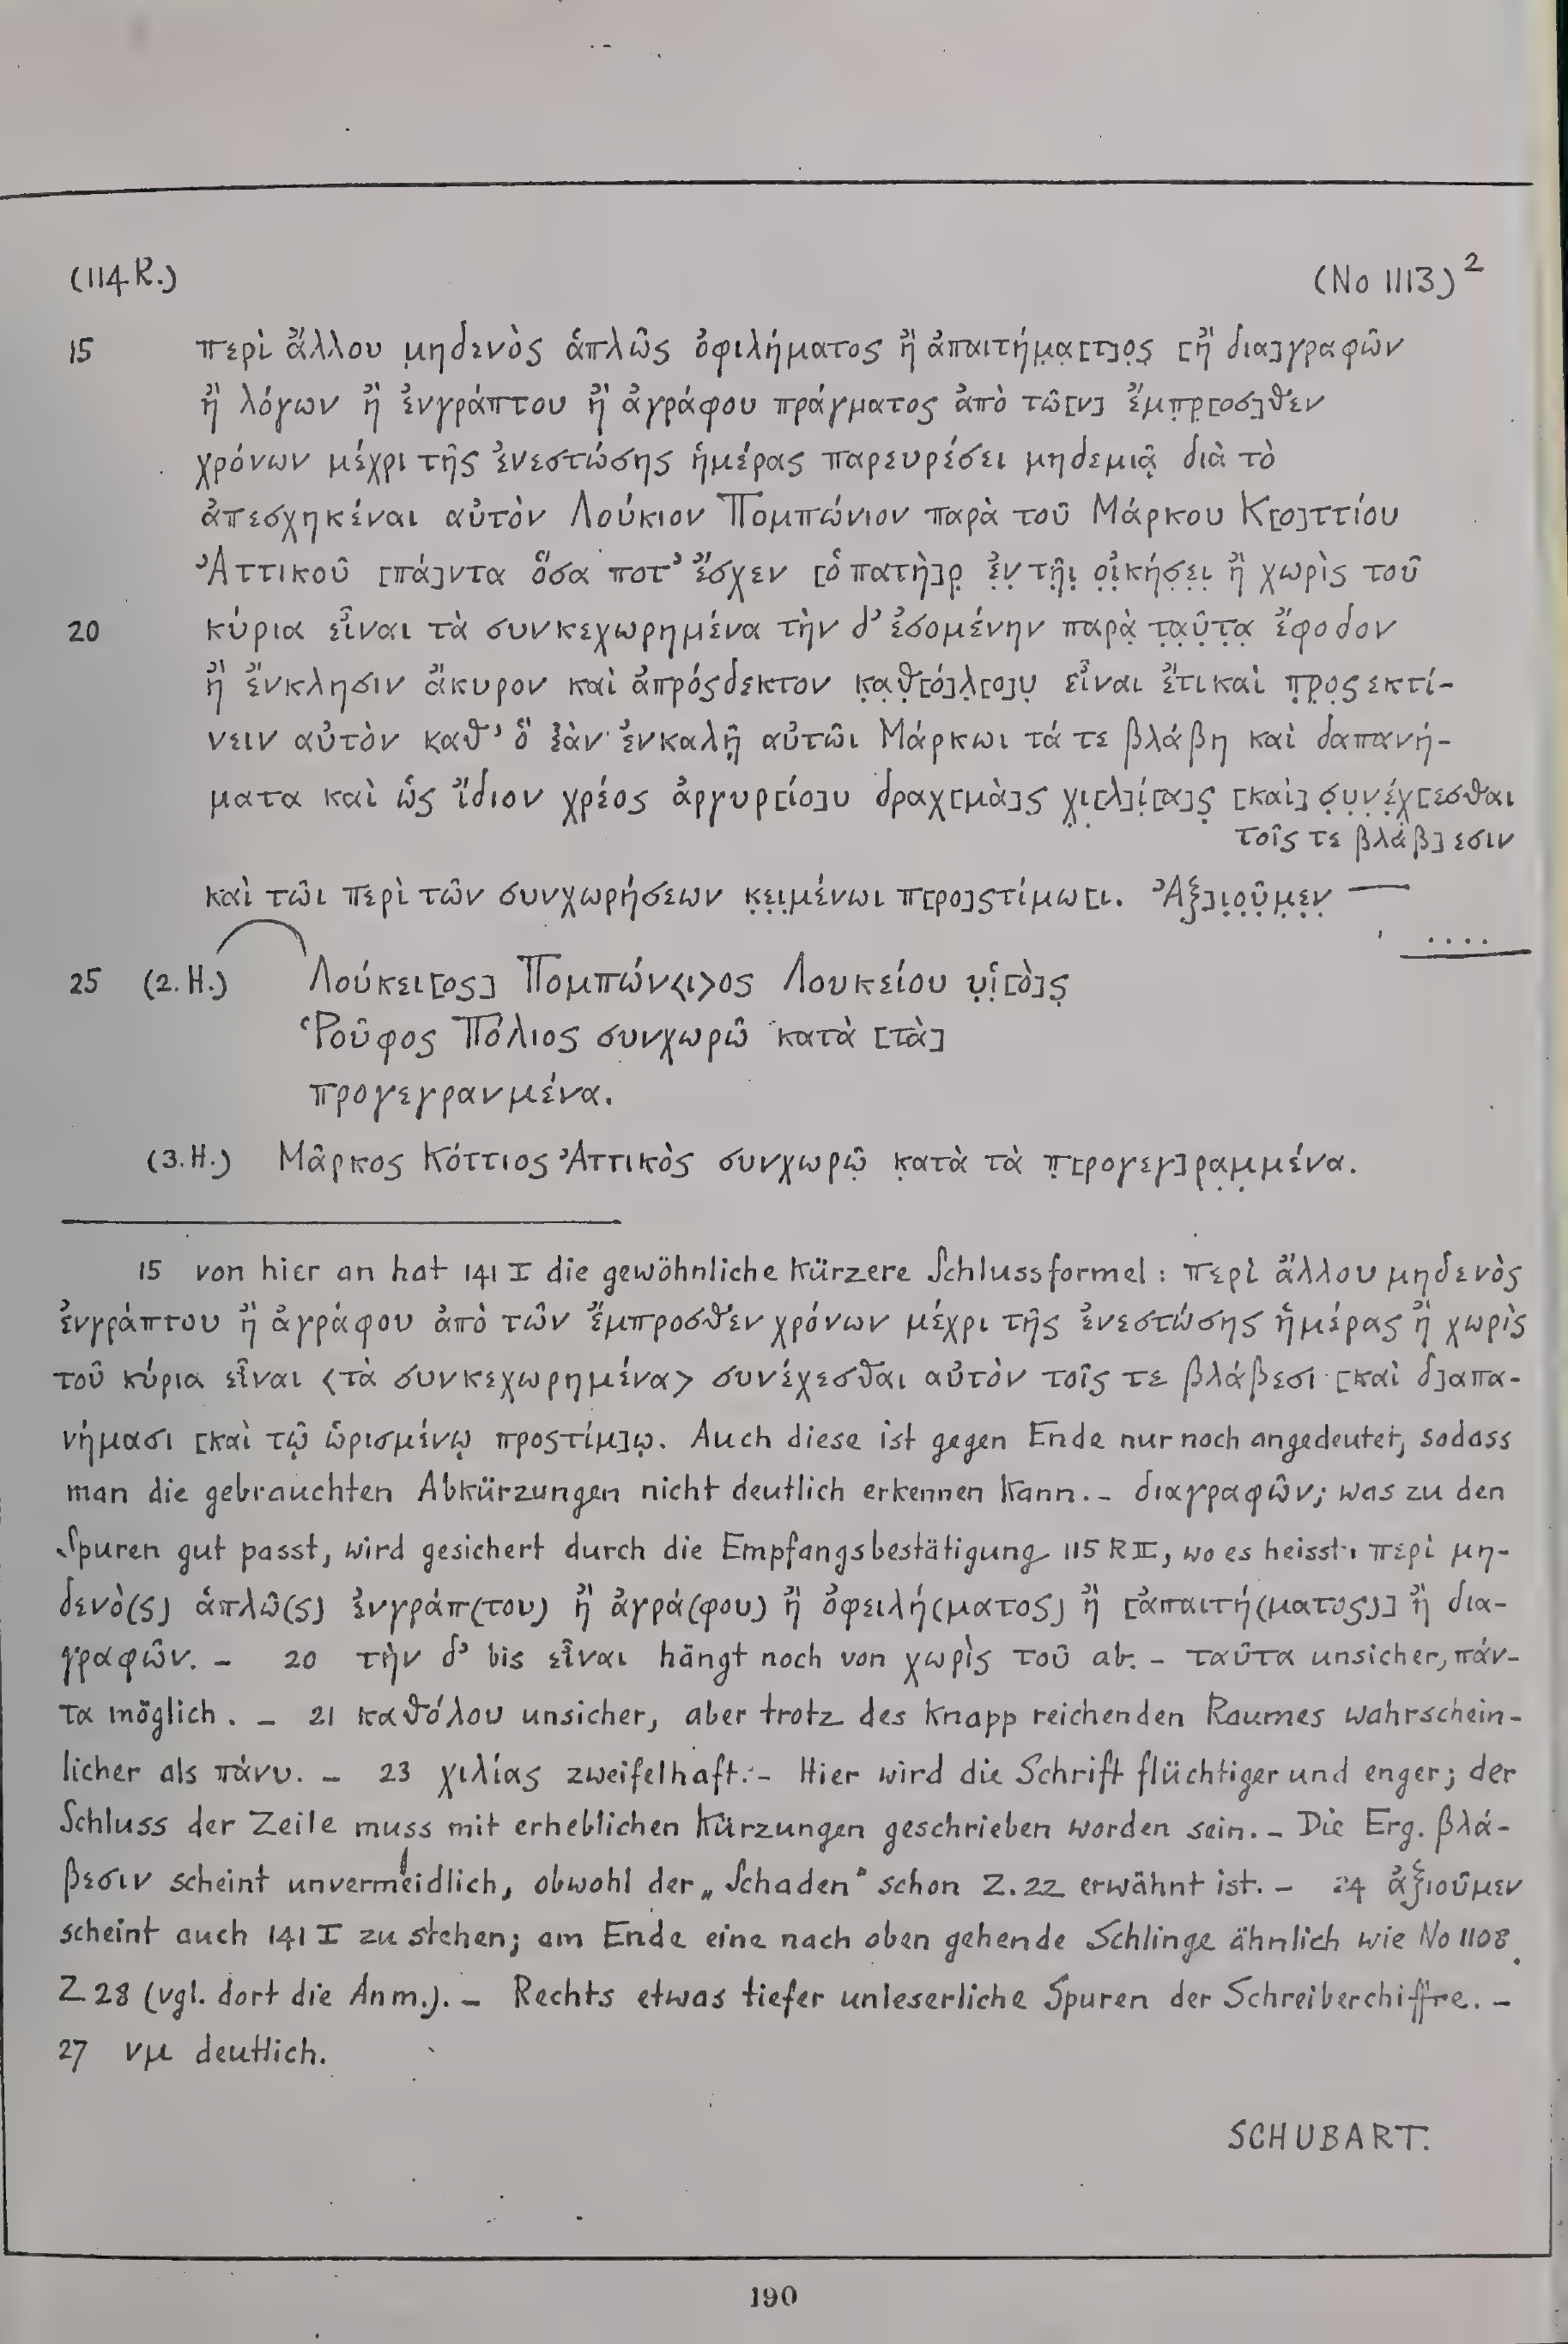 (114 R.) (No 1113)²
15 περὶ ἄλλου μ̣ηδενὸς ἁπλῶς ὀφιλήματος ἢ ἀπαιτήμ̣α̣[τ]ο̣ς̣ [ἢ δια]γραφῶν
ἢ λόγων ἢ ἐνγράπτου ἢ ἀγράφου πράγματος ἀπὸ τῶ[ν] ἔμπ̣ρ̣[οσ]θεν
χρόνων μέχρι τῆς ἐνεστώσης ἡμέρας παρευρέσει μηδεμιᾷ διὰ τὸ
ἀπεσχηκέναι αὐτὸν Λούκιον Πομπώνιον παρὰ τοῦ Μάρκου Κ[ο]ττίου
Ἀττικοῦ [πά]ντα ὅσα ποτ’ ἔσχεν [ὁ πατὴ]ρ̣ ἐ̣ν̣ τ̣ῆ̣ι̣ ο̣ἰ̣κή̣σ̣ε̣ι̣ ἢ χωρὶς τοῦ
20 κύρια εἶναι τὰ συνκεχωρημένα τὴν δ’ ἐσομένην παρὰ̣ τ̣α̣ῦ̣τ̣α̣ ἔφοδον
ἢ ἔνκλησιν ἄκυρον καὶ ἀπρόςδεκτον κ̣α̣θ̣[ό]λ̣[ο]υ̣ εἶναι ἔτι καὶ π̣ρ̣ο̣ς εκτί-
νειν αὐτὸν καθ’ ὃ ἐὰν ἐνκαλῇ αὐτῶι Μάρκωι τά τε βλάβη καὶ δαπανή-
ματα καὶ ὡς ἴδιον χρέος ἀργυρ[ίο]υ δραχ[μὰ]ς χ̣ι̣[λ]ί̣[α]ς̣ [καὶ] σ̣υ̣ν̣έ̣χ̣[εσθαι
τοῖς τε βλάβ]εσιν
καὶ τῶι περὶ τῶν συνχωρήσεων κ̣ε̣ι̣μένωι π[ρο]ςτίμω[ι. Ἀξ̣]ι̣ο̣ῦ̣μ̣ε̣ν̣ —
....
25 (2. H.) Λούκει[ος] Πομπών<ι>ος Λουκείου υ̣ἱ̣[ὸ]ς̣
Ῥοῦφος Πόλιος συνχωρῶ κατὰ [τὰ]
προγεγρανμένα.
(3. H.) Μᾶρκος Κόττιος Ἀττικὸς συνχωρῶ̣ κ̣ατὰ τὰ π̣[ρογεγ]ρ̣α̣μ̣μένα.
15 von hier an hat 141 I die gewöhnliche kürzere Schlussformel: περὶ ἄλλου μηδενὸς
ἐνγράπτου ἢ ἀγράφου ἀπὸ τῶν ἔμπροσθεν χρόνων μέχρι τῆς ἐνεστώσης ἡμέρας ἢ χωρὶς
τοῦ κύρια εἶναι <τὰ συνκεχωρημένα> συνέχεσθαι αὐτὸν τοῖς τε βλάβεσι [καὶ δ]απα-
νήμασι [καὶ τῷ ὡρισμένῳ προςτίμ]ῳ. Auch diese ist gegen Ende nur noch angedeutet, sodass
man die gebrauchten Abkürzungen nicht deutlich erkennen kann. – διαγραφῶν; was zu den
Spuren gut passt, wird gesichert durch die Empfangsbestätigung 115 R II, wo es heisst: περὶ μη-
δενὸ(ς) ἁπλῶ(ς) ἐνγράπ(του) ἢ ἀγρά(φου) ἢ ὀφειλή(ματος) ἢ [ἀπαιτή(ματος)] ἢ δια-
γραφῶν. – 20 τὴν δ’ bis εἶναι hängt noch von χωρὶς τοῦ ab. – ταῦτα unsicher, πάν-
τα möglich. – 21 καθόλου unsicher, aber trotz des knapp reichenden Raumes wahrschein-
licher als πάνυ. – 23 χιλίας zweifelhaft. – Hier wird die Schrift flüchtiger und enger; der
Schluss der Zeile muss mit erheblichen Kürzungen geschrieben worden sein. – Die Erg. βλά-
βεσιν scheint unvermeidlich, obwohl der „Schaden“ schon Z. 22 erwähnt ist. – 24 ἀξιοῦμεν
scheint auch 141 I zu stehen; am Ende eine nach oben gehende Schlinge ähnlich wie No 1108
Z 28 (vgl. dort die Anm.). – Rechts etwas tiefer unleserliche Spuren der Schreiberchiffre. –
27 νμ deutlich.
SCHUBART.
190